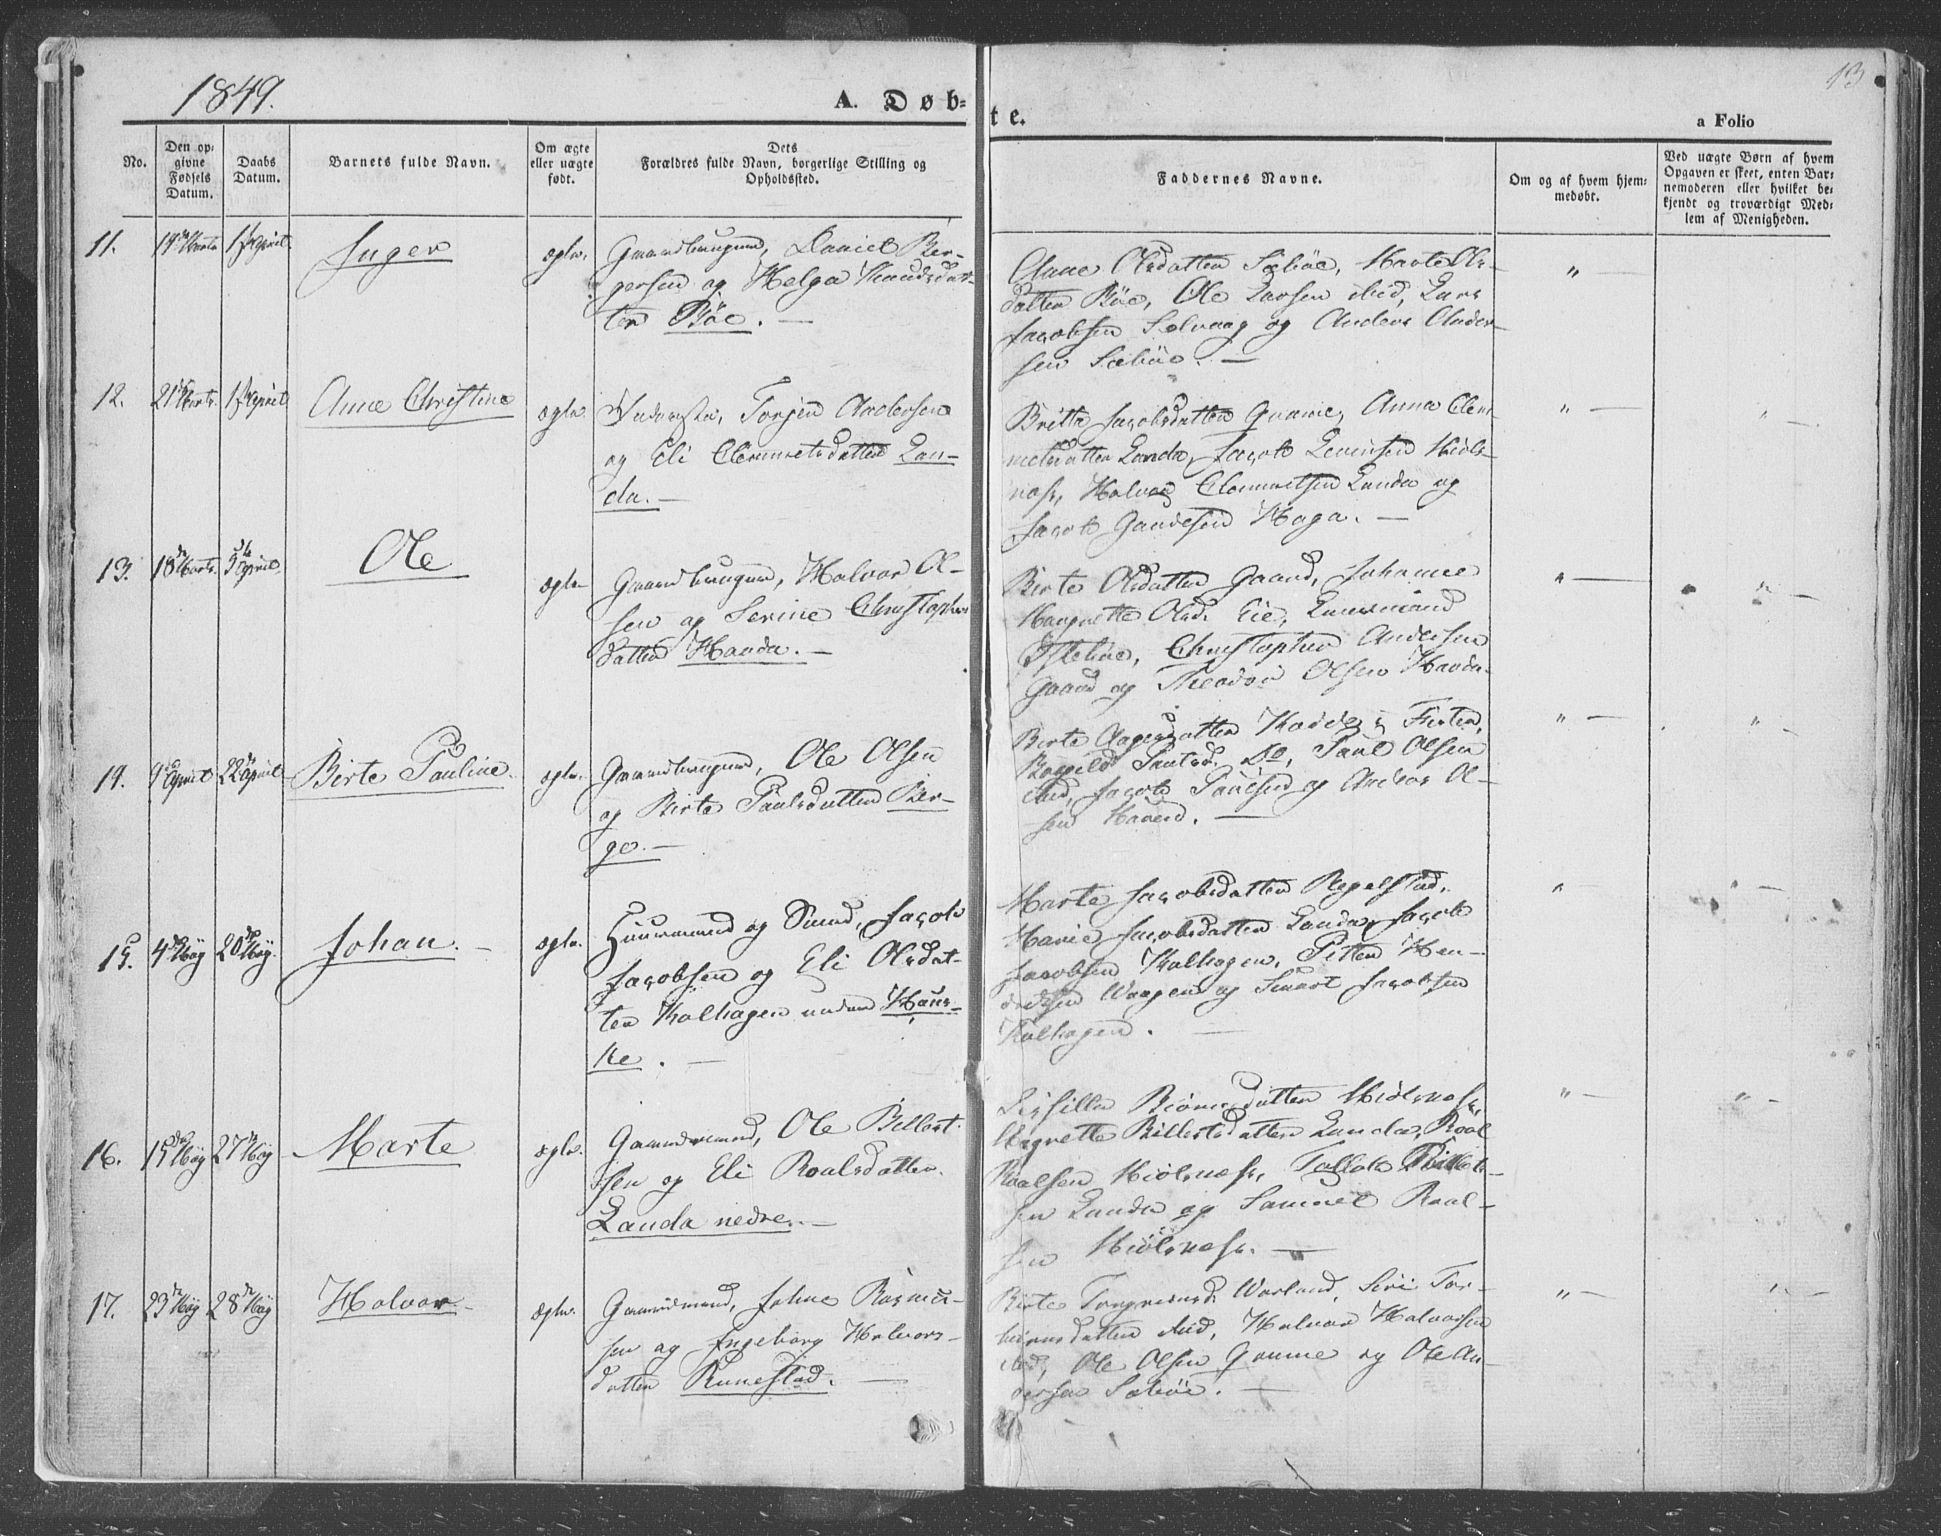 1849.
A. Døb=
te.
13
a Folio
No.
Den op=
givne
Fødsels
Datum.
Daabs
Datum.
Barnets fulde Navn.
Om ægte
eller uægte
født.
Dets
Forældres fulde Navn, borgerlige Stilling og
Opholdssted.
Faddernes Navne.
Om og af hvem hjem=
medøbt.
Ved uægte Børn af hvem
Opgaven er skeet, enten Bar=
nemoderen eller hvilket be=
kjendt og troværdigt Med=
lem af Menigheden.
11.
19de Marts
1ste April
Inger
ægte.
Gaardbruger, Daniel Ber-
gersen og Helga Knudsdat-
ter Böe. —
Anne Olsdatter Saeböe, Marte Ols-
datter Böe, Ole Larsen ibid, Lars
Jacobsen Solvaag og Anders Ander-
sen Saeböe. —
" —
12.
21de Marts.
1ste April
Anne Christine
ægte.
Inderste, Torjer Andersen
og Eli Clemmetsdatter Lan-
da. —
Britta Jacobsdatter Gramme, Anna Clem-
metsdatter Landa, Jacob Levinsen Hiöls-
næs, Halvor Clemmetsen Landa og
Jacob Haga. —
" —
"
13.
18de Marts.
5te April.
Ole
ægte
Gaardbruger, Halvor Ol-
sen og Serine Christophers
datter Handa. —
Birte Olsdatter Gaard, Johanne
Margrethe Olsd. Eie,
Christopher Andersen
Gaard og Theodor Olsen Handa.
" —
" —
14.
9de April
22de April
Birte Pauline.
ægte.
Gaardbruger, Ole Olsen
og Birte Paulsdatter Ber-
ge. —
Birte Aagesdatter
Do, Paul Olsen
ibid, Jacob Paulsen og Andreas Ol-
sen —
" —
"
15.
4de May
20de May.
Johan. —
ægte.
Huusmand og Smed, Jacob
Jacobsen og Eli Olsdat-
ter Kalhagen under Haus-
ke. —
Marte Jacobsdatter Regelstad,
Marie Jacobsdatter Landa, Jacob
Jacobsen Kalhagen, Petter Hen-
dricsen Waagen og Jacobsen
Kalhagen. —
" —
" —
16.
15de May
27de May
Marte
ægte.
Gaardmand, Ole Billert-
sen og Eli Roalsdatter
Landa nedre. —
Sissilla Biörnsdatter Hiölsnæs,
Agnette Billertsdatter Landa, Roal
Roalsen Hiölsnæs, Tollak Billert-
sen Landa og Sammel Roal-
sen Hiölsnæs. —
" —
" —
17.
23de May
28de May
Halvor
ægte.
Gaardmand, Johne Rasmu-
sen og Ingeborg Halvors-
datter Runestad. —
Birte Torgersensd. Worland, Siri Tor-
biörnsdatter ibid, Halvor Halvorsen
ibid, Ole Olsen Gramme og Ole An-
dersen Saeböe. —
" —
" —